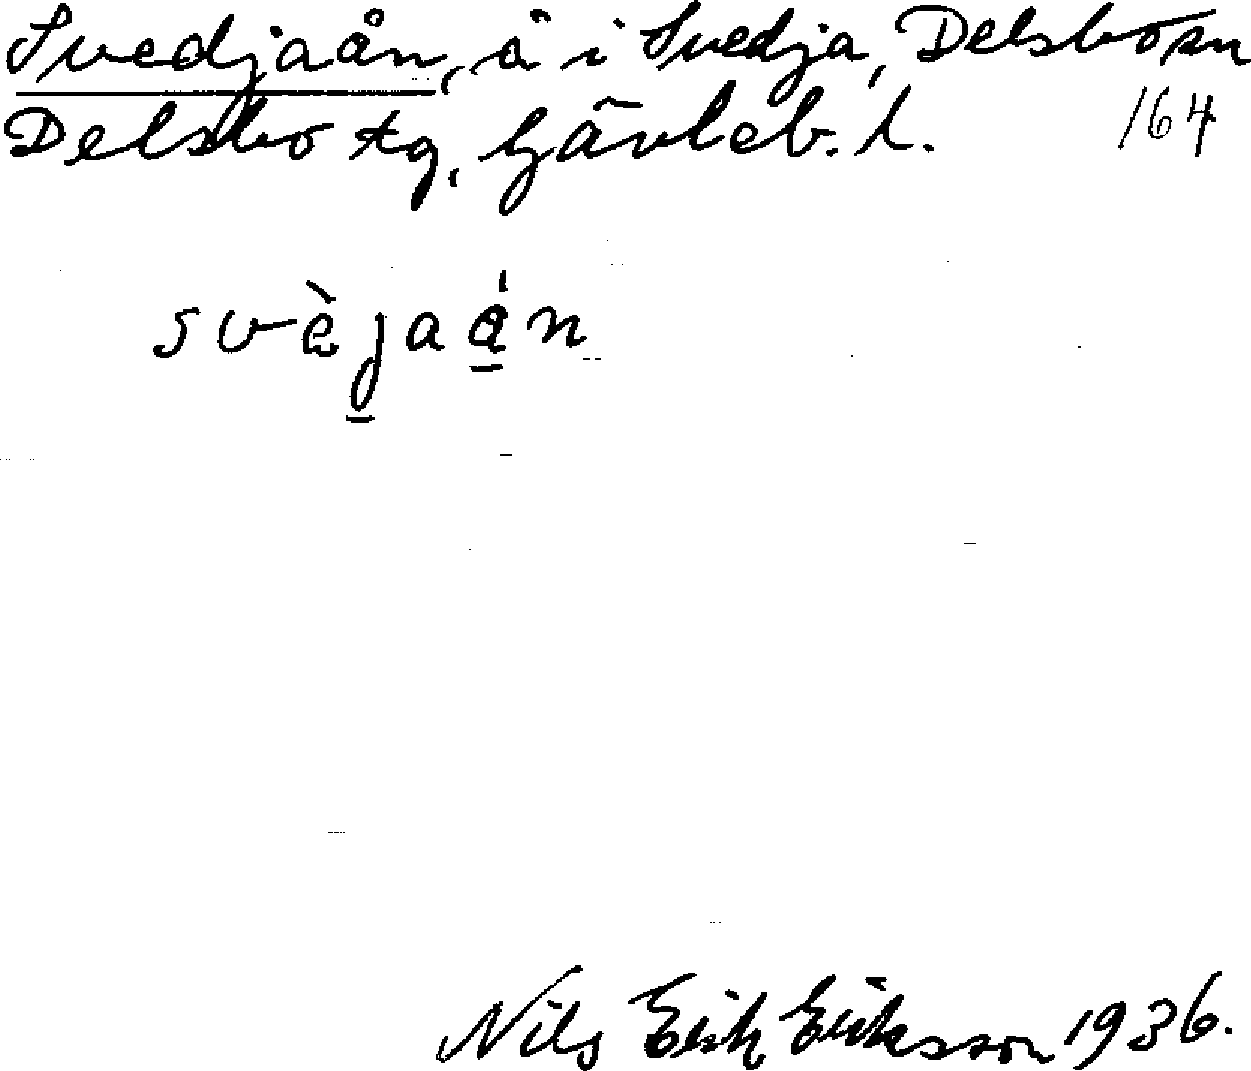 Svedjaån, å i Svedja, Delsbo sn
Delsbo tg, Gävleb. l. 164
svèjaán
Nils Erik Eriksson 1936.